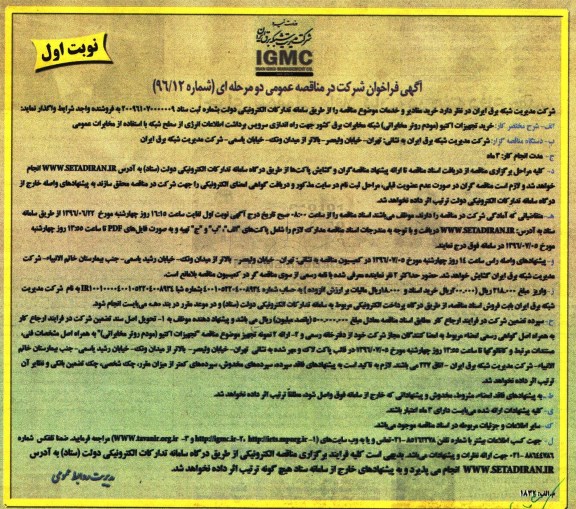 نوبت اول
وزارت نیرو
شرکت مدیریت شبکه برق ایران
IGMC
آگهی فراخوان شرکت در مناقصه عمومی دو مرحله ای (شماره ۹۶/۱۲)
شرکت مدیریت شبکه برق ایران در نظر دارد خرید مقادیر و خدمات موضوع مناقصه را از طریق سامانه تدارکات الکترونیکی دولت بشماره ثبت سناد به فروشنده واجد شرایط واگذار نماید:
الف- شرح مختصر کار: خرید تجهیزات اکتیو (مودم روتر مخابراتی) شبکه مخابرات برق کشور جهت راه اندازی سرویس برداشت اطلاعات انرژی از سطح شبکه با استفاده از مخابرات عمومی
ب- دستگاه مناقصه گزار: شرکت مدیریت شبکه برق ایران به نشانی: تهران- خیابان ولیعصر- بالاتر از میدان ونک- خیابان یاسمی- شرکت مدیریت شبکه برق ایران
ج- مدت انجام کار: ۳ ماه
د- کلیه مراحل برگزاری مناقصه از دریافت اسناد مناقصه تا ارائه پیشنهاد مناقصه‌گران و گشایش پاکت‌ها از طریق درگاه سامانه تدارکات الکترونیکی دولت (ستاد) به آدرس WWW.SETADIRAN.IR انجام
خواهد شد و لازم است مناقصه گران در صورت عدم عضویت قبلی، مراحل ثبت نام در سایت مذکور و دریافت گواهی امضای الکترونیکی را جهت شرکت در مناقصه محقق سازند. به پیشنهادهای واصله خارج از
درگاه سامانه تدارکات الکترونیکی دولت ترتیب اثر داده نخواهد شد.
ه- متقاضیانی که آمادگی شرکت در مناقصه را دارند، موظف می‌باشند اسناد مناقصه را از ساعت ۸:۰۰ صبح تاریخ درج آگهی نوبت اول لغایت ساعت ۱۶:۱۵ روز چهارشنبه مورخ ۱۳۹۶/۰۶/۲۲ از طریق سامانه
ستاد به آدرس: WWW.SETADIRAN.IR دریافت و با توجه به مندرجات اسناد مناقصه مدارک لازم را شامل پاکت‌های "الف"، "ب" و "ج" تهیه و به صورت فایل‌های PDF تا ساعت ۱۳:۵۵ روز چهارشنبه
مورخ ۱۳۹۶/۰۷/۰۵ در سامانه فوق درج نمایند.
و- پیشنهادهای واصله راس ساعت ۱۴ روز چهارشنبه مورخ ۱۳۹۶/۰۷/۰۵ در کمیسیون مناقصه به نشانی: تهران- خیابان ولیعصر- بالاتر از میدان ونک- خیابان رشید یاسمی- جنب بیمارستان خاتم الانبیاء- شرکت
مدیریت شبکه برق ایران گشایش خواهد شد. حضور حداکثر ۲ نفر نماینده معرفی شده با نامه رسمی از سوی مناقصه گر در کمیسیون مناقصه بلامانع است.
ز- واریز مبلغ ریال ( ریال خرید اسناد و ریال مالیات بر ارزش افزوده ) به حساب شماره شبا به نام شرکت مدیریت
شبکه برق ایران بابت فروش اسناد مناقصه از طریق درگاه پرداخت الکترونیکی مربوط به سامانه تدارکات الکترونیکی دولت (ستاد) و در موعد مقرر در بند «ه» می‌بایست انجام شود.
ح- سپرده تضمین شرکت در فرایند ارجاع کار مطابق اسناد مناقصه معادل مبلغ ۵۰۰,۰۰۰,۰۰۰ (پانصد میلیون) ریال می باشد و پیشنهاد دهنده موظف به ۱- تحویل اصل سند تضمین شرکت در فرایند ارجاع کار
به همراه اصل گواهی رسمی امضاء مربوط به امضا کنندگان مجاز شرکت خود از دفترخانه رسمی و ۲- ارائه ۲ نمونه تجهیز موضوع مناقصه "تجهیزات اکتیو (مودم روتر مخابراتی)" به همراه اصل مشخصات فنی،
مستندات مرتبط و کاتالوگها تا ساعت ۱۳:۵۵ روز چهارشنبه مورخ ۱۳۹۶/۰۷/۰۵ در قالب پاکت لاک و مهر شده به نشانی تهران- خیابان ولیعصر- بالاتر از میدان ونک- خیابان رشید یاسمی- جنب بیمارستان خاتم
الانبیاء- شرکت مدیریت شبکه برق ایران - اتاق ۲۲۷ می باشند. لازم به تاکید است به پیشنهادهای فاقد سپرده، سپرده‌های مخدوش، سپرده‌های کمتر از میزان مقرر، چک شخصی، چک تضمین بانکی و نظایر آن
ترتیب اثر داده نخواهد شد.
ط- به پیشنهادهای فاقد امضاء، مشروط، مخدوش و پیشنهاداتی که خارج از سامانه فوق واصل شود، مطلقاً ترتیب اثر داده نخواهد شد.
ی- کلیه پیشنهادات ارائه شده می‌بایست دارای ۳ ماه اعتبار باشند.
ک- سایر اطلاعات و جزئیات مربوطه در اسناد مناقصه موجود می‌باشد.
ل- جهت کسب اطلاعات بیشتر با شماره تلفن ۰۲۱ تماس و یا به وب سایت‌های (۱- http://iets.mporg.ir، ۲- http://igmc.ir و ۳- WWW.tavanir.org.ir) مراجعه فرمایید. ضمنا تلفکس شماره
۰۲۱ جهت ارائه نظرات و پیشنهادات می باشد. بدیهی است کلیه فرایند برگزاری مناقصه الکترونیکی از طریق درگاه سامانه تدارکات الکترونیکی دولت (ستاد) به آدرس
WWW.SETADIRAN.IR انجام می پذیرد و به پیشنهادهای خارج از سامانه ستاد هیچ گونه ترتیب اثر داده نخواهد شد.
مدیریت روابط عمومی
م.الف: ۱۸۳۴